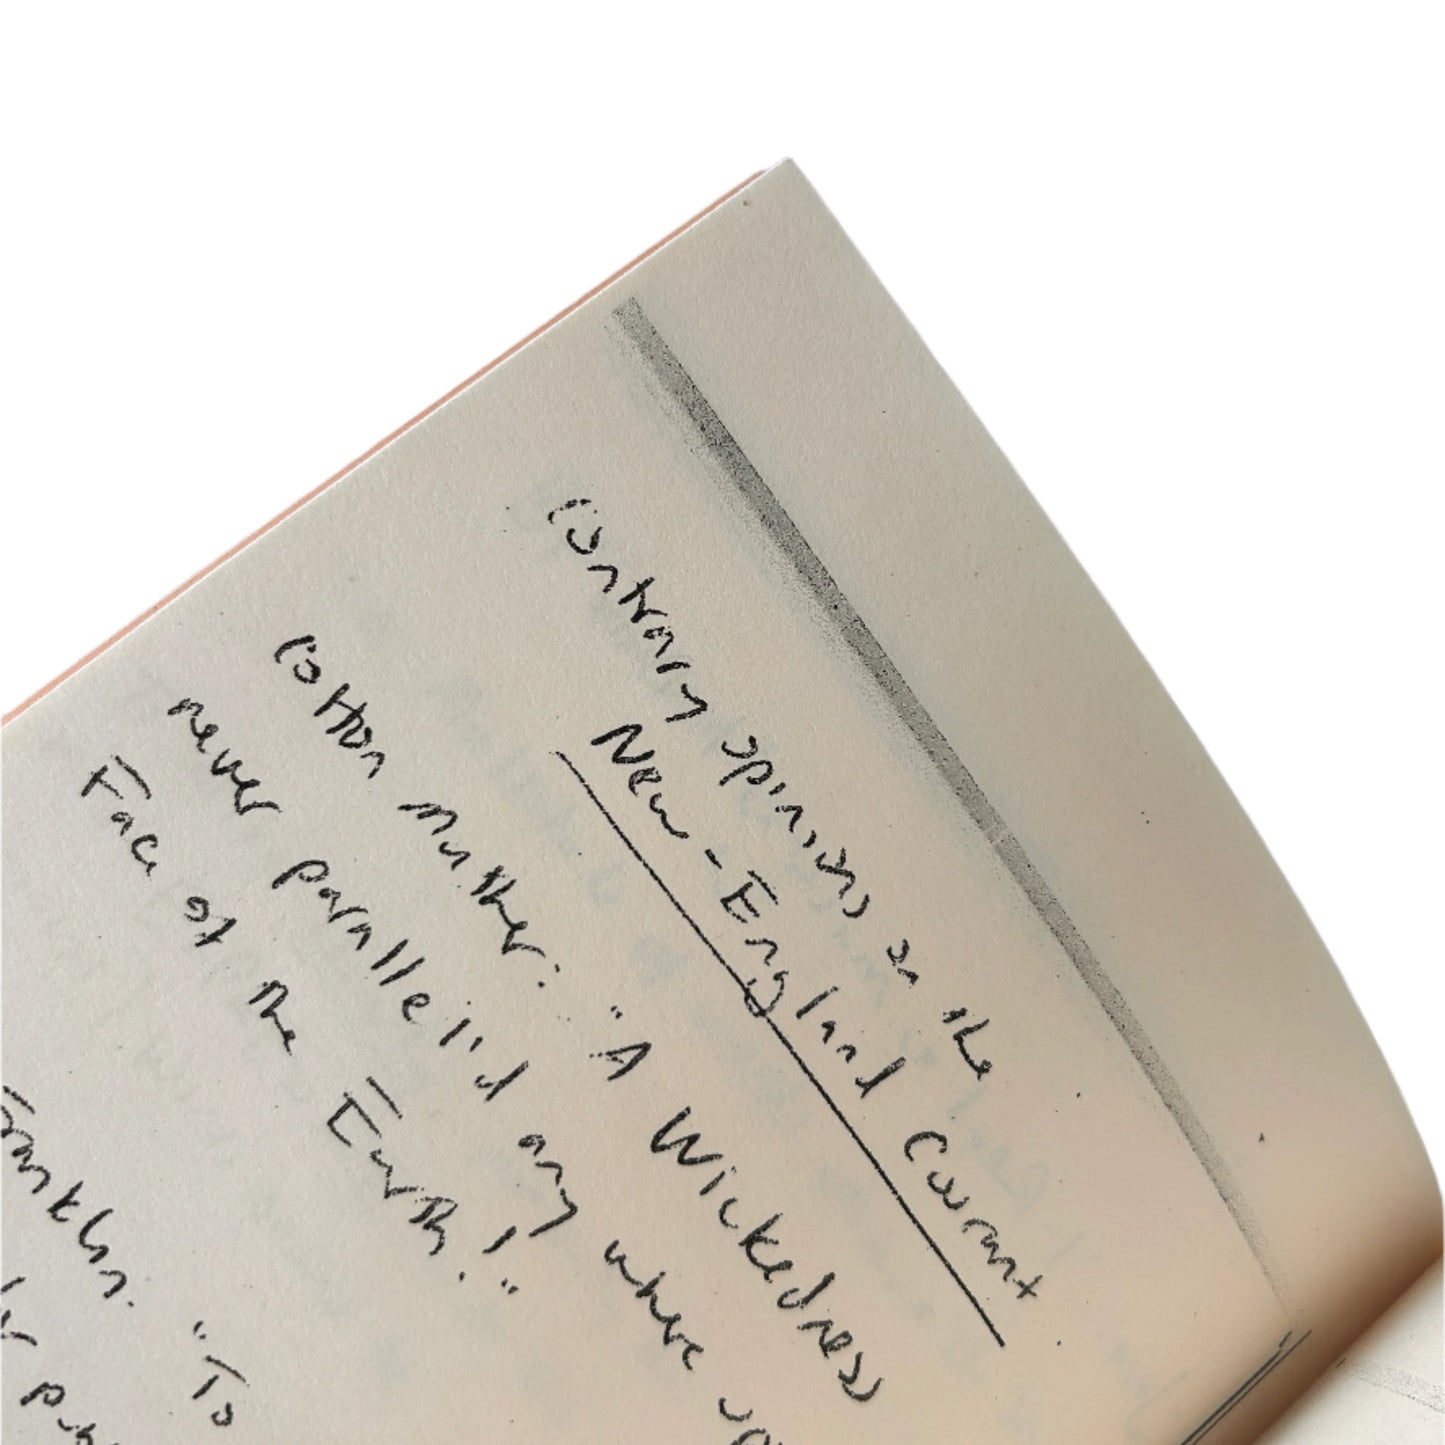 Contrary opinions on the
New-England Courant
Cotton Mather: "A Wickedness
never parallel'd any where
Face of the Earth!"
Franklin: "To